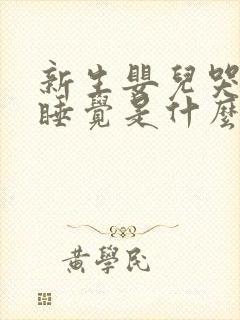 新生嬰兒哭
睡覺是什麼
黃學民